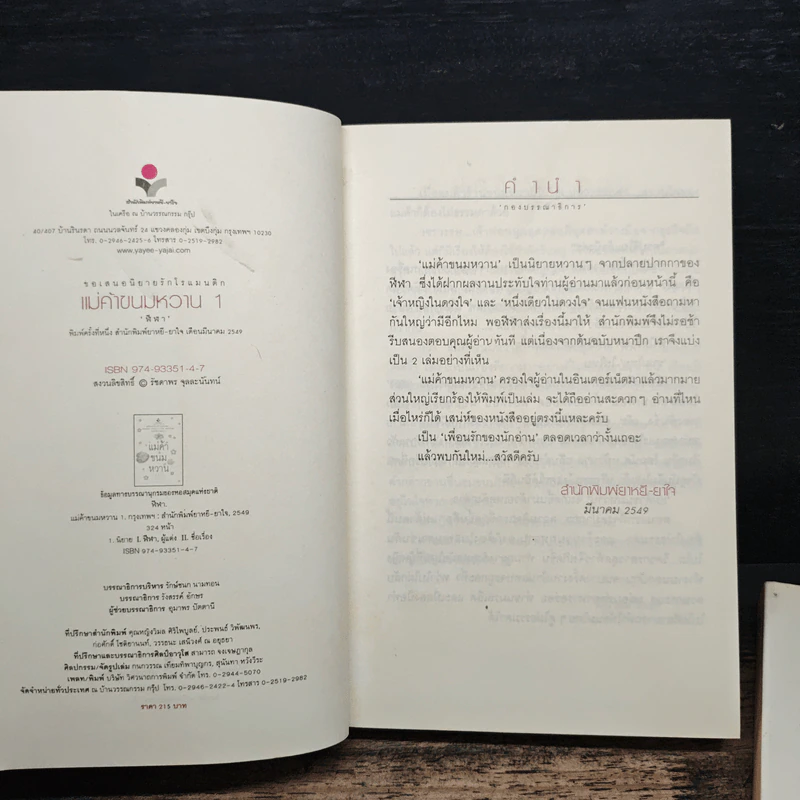 สำนักพิมพ์ยาหยี-ยาใจ
ในเครือ ณ บ้านวรรณกรรม กรุ๊ป
40/407 บ้านรินรดา ถนนนวลจันทร์ 24 แขวงคลองกุ่ม เขตบึงกุ่ม กรุงเทพฯ 10230
โทร. 0-2946-2425-6 โทรสาร 0-2519-2982
www.yayee-yajai.com
ขอเสนอนิยายรักโรแมนติก
แม่ค้าขนมหวาน 1
'ฬีฬา'
พิมพ์ครั้งที่หนึ่ง สำนักพิมพ์ยาหยี-ยาใจ เดือนมีนาคม 2549
ISBN 974-93351-4-7
สงวนลิขสิทธิ์ © รัชดาพร จุลละนันทน์
แม่ค้า
ขนม
หวาน
ข้อมูลทางบรรณานุกรมของหอสมุดแห่งชาติ
ฬีฬา.
แม่ค้าขนมหวาน 1. กรุงเทพฯ : สำนักพิมพ์ยาหยี-ยาใจ, 2549
324 หน้า
1. นิยาย I. ฬีฬา, ผู้แต่ง II. ชื่อเรื่อง
ISBN 974-93351-4-7
บรรณาธิการบริหาร รักษ์ชนก นามทอน
บรรณาธิการ รังสรรค์ อักษร
ผู้ช่วยบรรณาธิการ อุมาพร ปัตตานี
ที่ปรึกษาสำนักพิมพ์ คุณหญิงวิมล ศิริไพบูลย์, ประพนธ์ วิพัฒนพร,
ก่อศักดิ์ โชติยานนท์, วรรธนะ เสนีวงศ์ ณ อยุธยา
ที่ปรึกษาและบรรณาธิการศิลป์อาวุโส สามารถ จงเจษฎากุล
ศิลปกรรม/จัดรูปเล่ม กนกวรรณ เทียมทัพาบุญกร, สุนันทา หวังวีระ
เพลท/พิมพ์ บริษัท วิศวนาถการพิมพ์ จำกัด โทร. 0-2944-5070
จัดจำหน่ายทั่วประเทศ ณ บ้านวรรณกรรม กรุ๊ป โทร. 0-2946-2422-4 โทรสาร 0-2519-2982
ราคา 215 บาท
คำนำ
'กองบรรณาธิการ'
'แม่ค้าขนมหวาน' เป็นนิยายหวานๆ จากปลายปากกาของ
ฬีฬา ซึ่งได้ฝากผลงานประทับใจท่านผู้อ่านมาแล้วก่อนหน้านี้ คือ
'เจ้าหญิงในดวงใจ' และ 'หนึ่งเดียวในดวงใจ' จนแฟนหนังสือถามหา
กันใหญ่ว่ามีอีกไหม พอฬีฬาส่งเรื่องนี้มาให้ สำนักพิมพ์จึงไม่รอช้า
รีบสนองตอบคุณผู้อ่านทันที แต่เนื่องจากต้นฉบับหนาปึก เราจึงแบ่ง
เป็น 2 เล่มอย่างที่เห็น
'แม่ค้าขนมหวาน' ครองใจผู้อ่านในอินเตอร์เน็ตมาแล้วมากมาย
ส่วนใหญ่เรียกร้องให้พิมพ์เป็นเล่ม จะได้ถืออ่านสะดวกๆ อ่านที่ไหน
เมื่อไหร่ก็ได้ เสน่ห์ของหนังสืออยู่ตรงนี้แหละครับ
เป็น 'เพื่อนรักของนักอ่าน' ตลอดเวลาว่างั้นเถอะ
แล้วพบกันใหม่...สวัสดีครับ
สำนักพิมพ์ยาหยี-ยาใจ
มีนาคม 2549